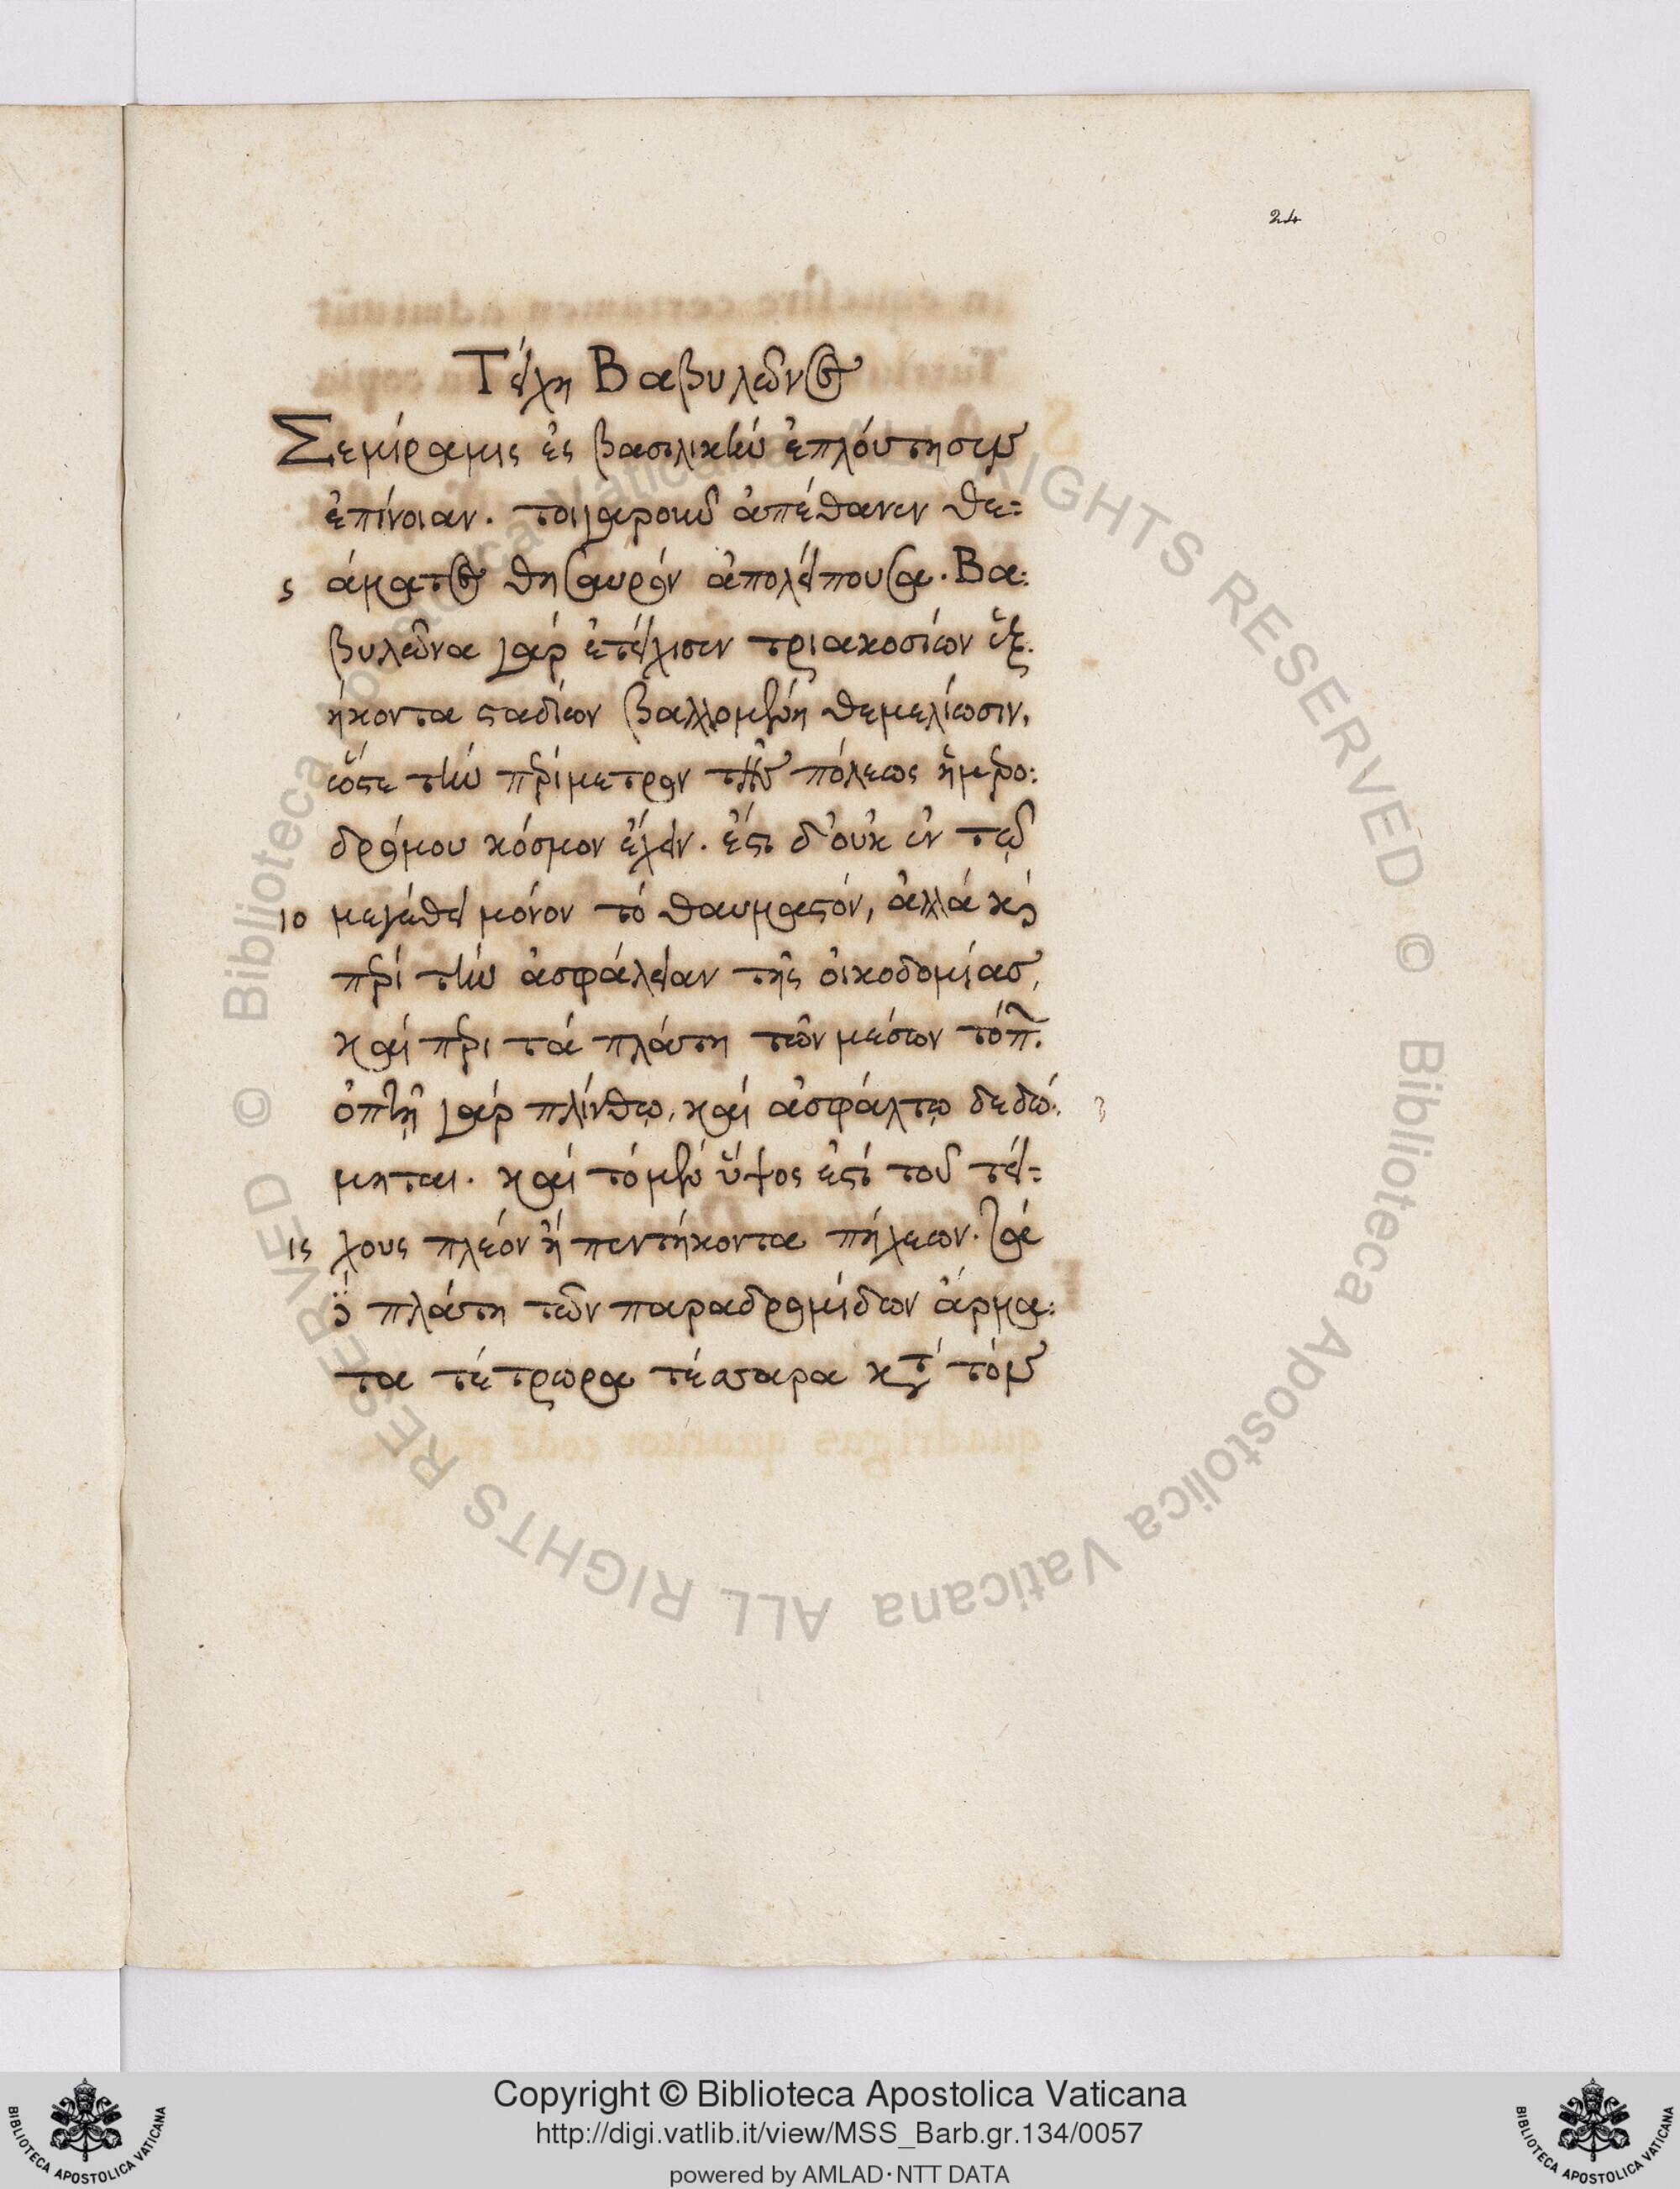 24
Τείχη Βαβυλῶνος
Σεμίραμις εἰς βασιλικὴν ἐπλούτησεν
ἐπίνοιαν. τοιγαροῦν ἀπέθανεν θε=
5 άματος θησαυρὸν ἀπολείπουσα. Βα:
βυλῶνα γὰρ ἐτείχισεν τριακοσίων ἑξ.
ήκοντα σταδίων βαλλομένη θεμελίωσιν,
ὥστε τὴν περίμετρον τῆς πόλεως ἡμερο:
δρόμου κόσμον ἔχειν. ἔστι δ' οὐκ ἐν τῷ
10 μεγέθει μόνον τὸ θαυμαστόν, ἀλλὰ καὶ
περὶ τὴν ἀσφάλειαν τῆς οἰκοδομίας,
καὶ περι τὰ πλάτη τῶν μέσων τόπ.
ὀπτῇ γὰρ πλίνθῳ, καὶ ἀσφάλτῳ δεδό.
μηται. καὶ τὸ μὲν ὕψος ἐστὶ τοῦ τεί=
15 χους πλέον ἢ πεντήκοντα πήχεων. τὰ
δὲ πλάτη τῶν παραδρομίδων ἅρμα:
τα τέτρωρα τέσσαρα κατὰ τὸν
Copyright © Biblioteca Apostolica Vaticana
http://digi.vatlib.it/view/MSS_Barb.gr.134/0057
powered by AMLAD·NTT DATA
BIBLIOTECA APOSTOLICA VATICANA
BIBLIOTECA APOSTOLICA VATICANA
© Biblioteca Apostolica Vaticana ALL RIGHTS RESERVED
© Biblioteca Apostolica Vaticana ALL RIGHTS RESERVED